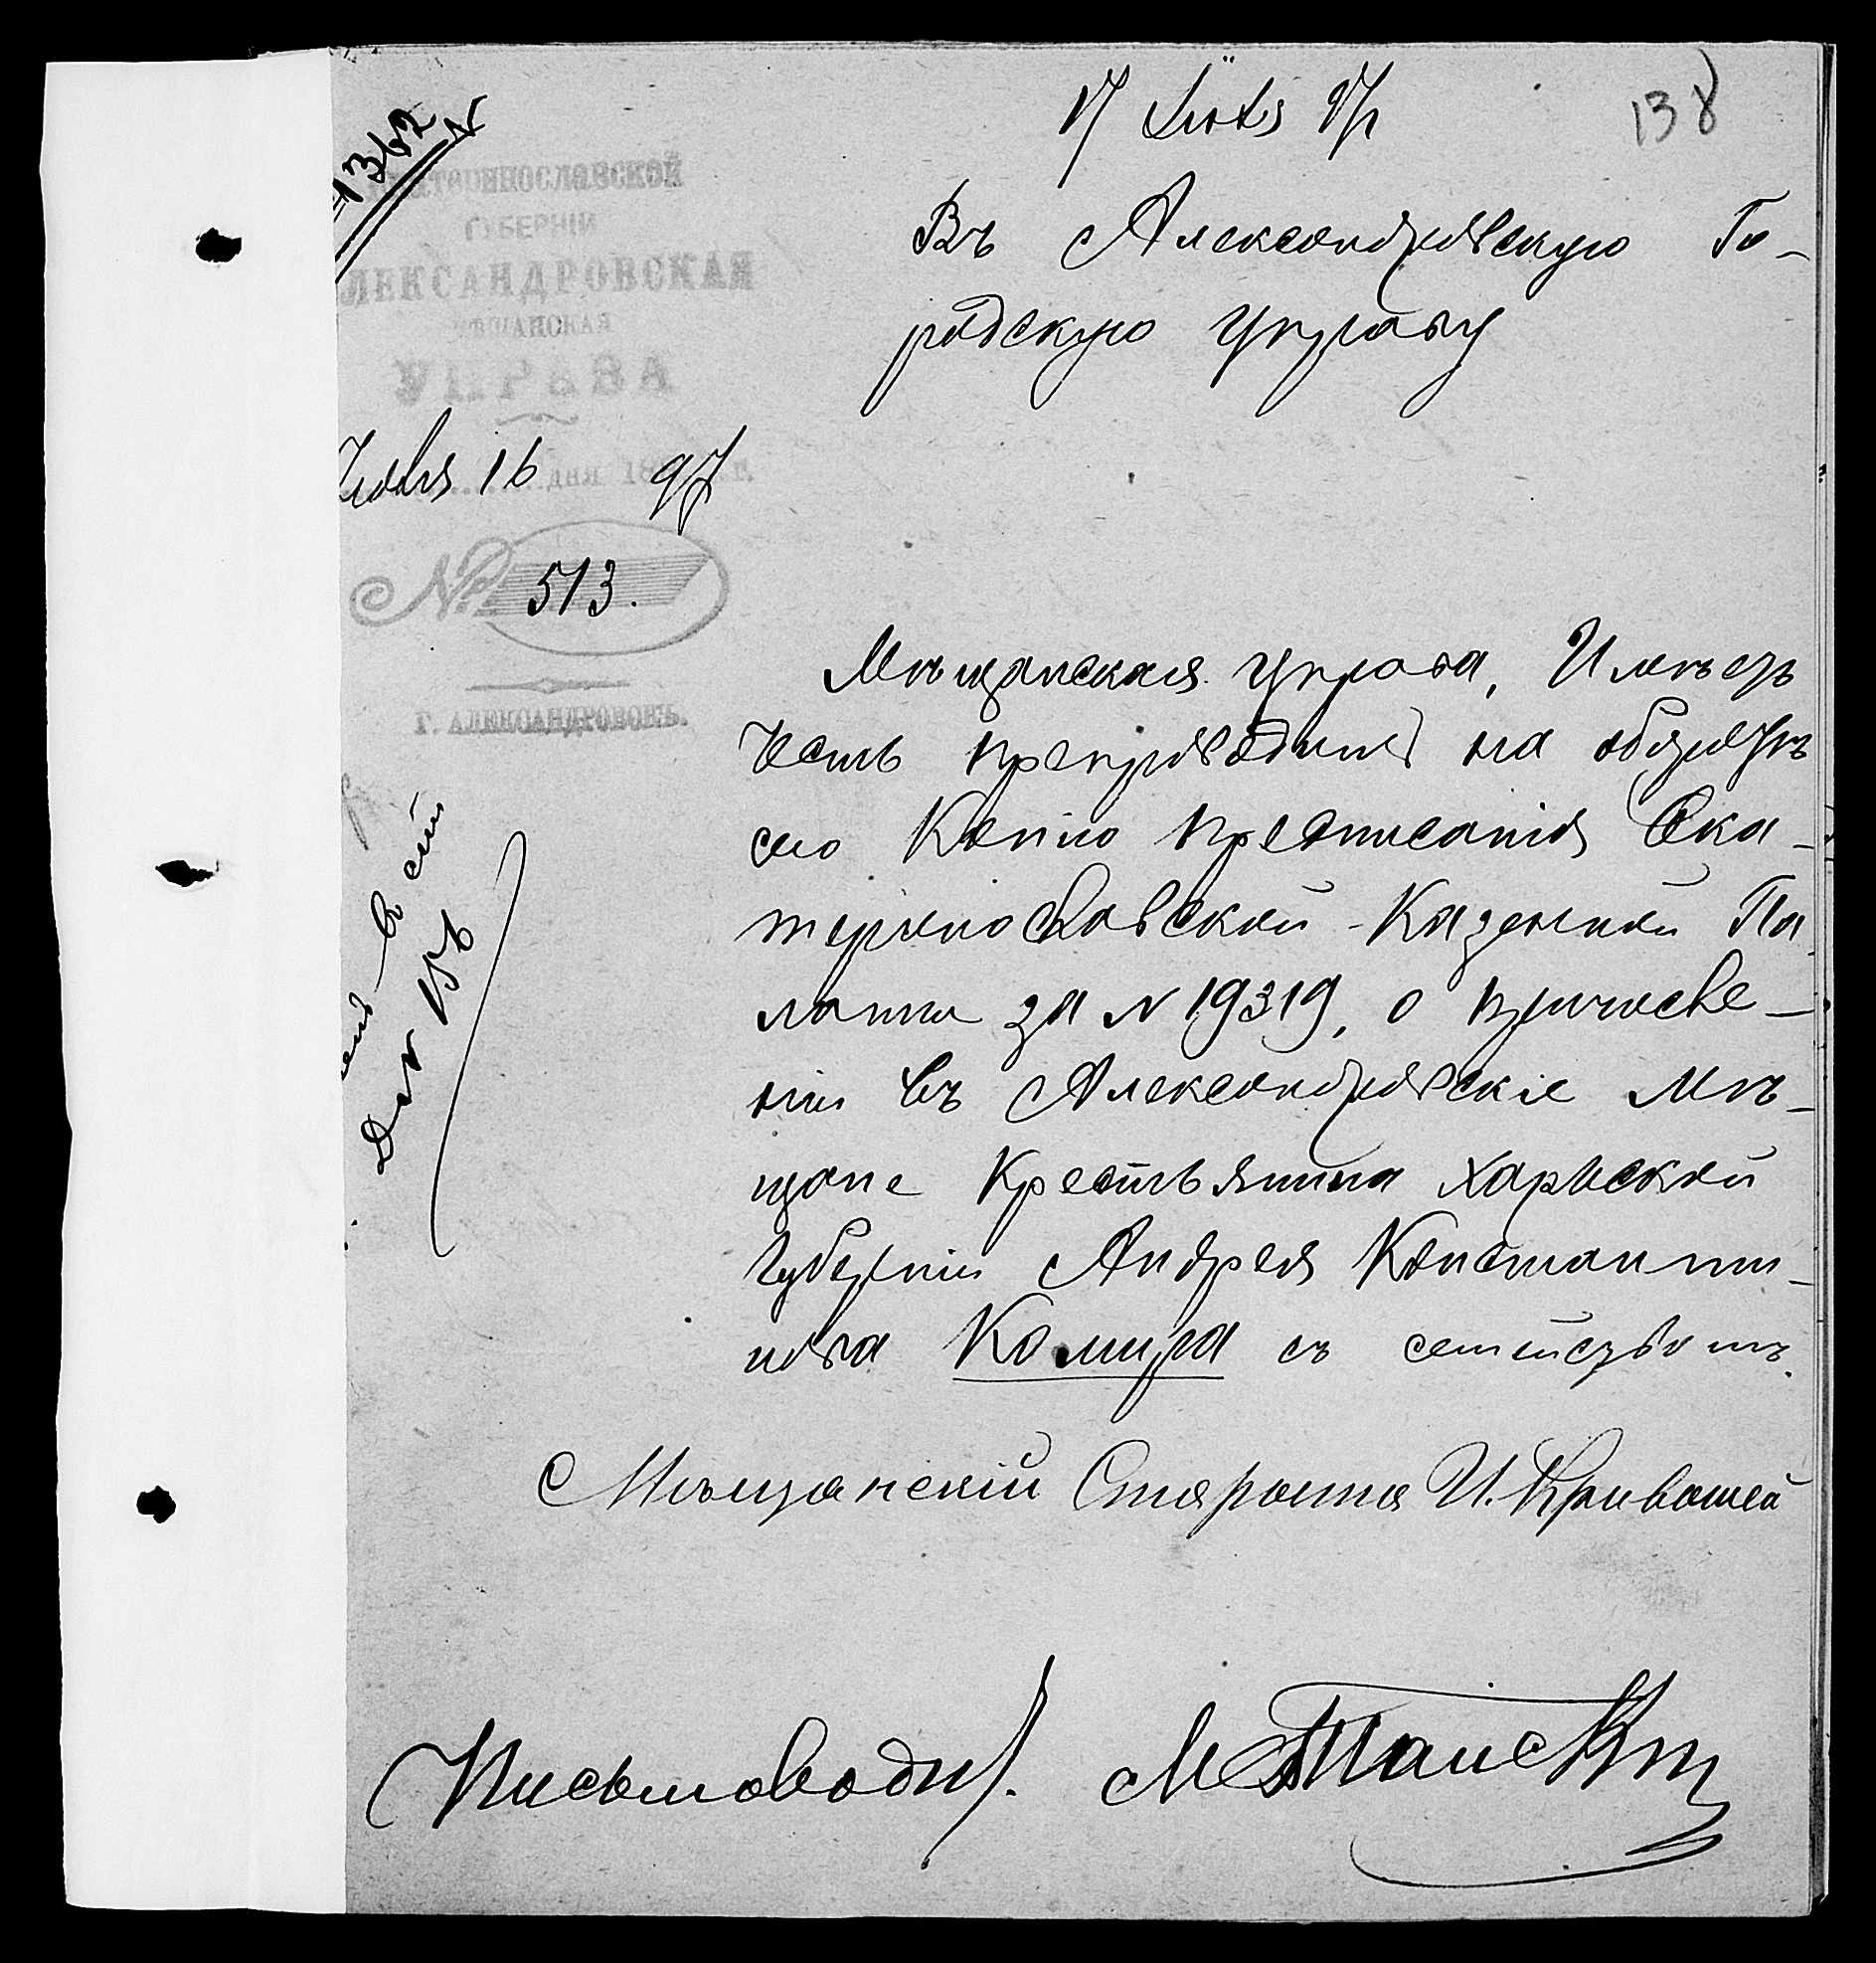 138
1362
Екатеринославской
ГУБЕРНІИ
АЛЕКСАНДРОВСКАЯ
МѢЩАНСКАЯ
УПРАВА
16 дня 1897 г.
№ 513.
Г. АЛЕКСАНДРОВСКЪ.
Въ Александровскую Го-
родскую управу
Мѣщанская управа, Имѣетъ
честь препроводить на оборотѣ
сего Копію предписанія Ека-
теринославской Казенной Па
латы за № 19319, о причисле-
ніи въ Александровскіе Мѣ-
щане Крестьянина Харьской
Губерніи Андрея Константи-
нова Комира съ семействомъ.
Мѣщанскій Староста И. Кривошей
Письмоводит.